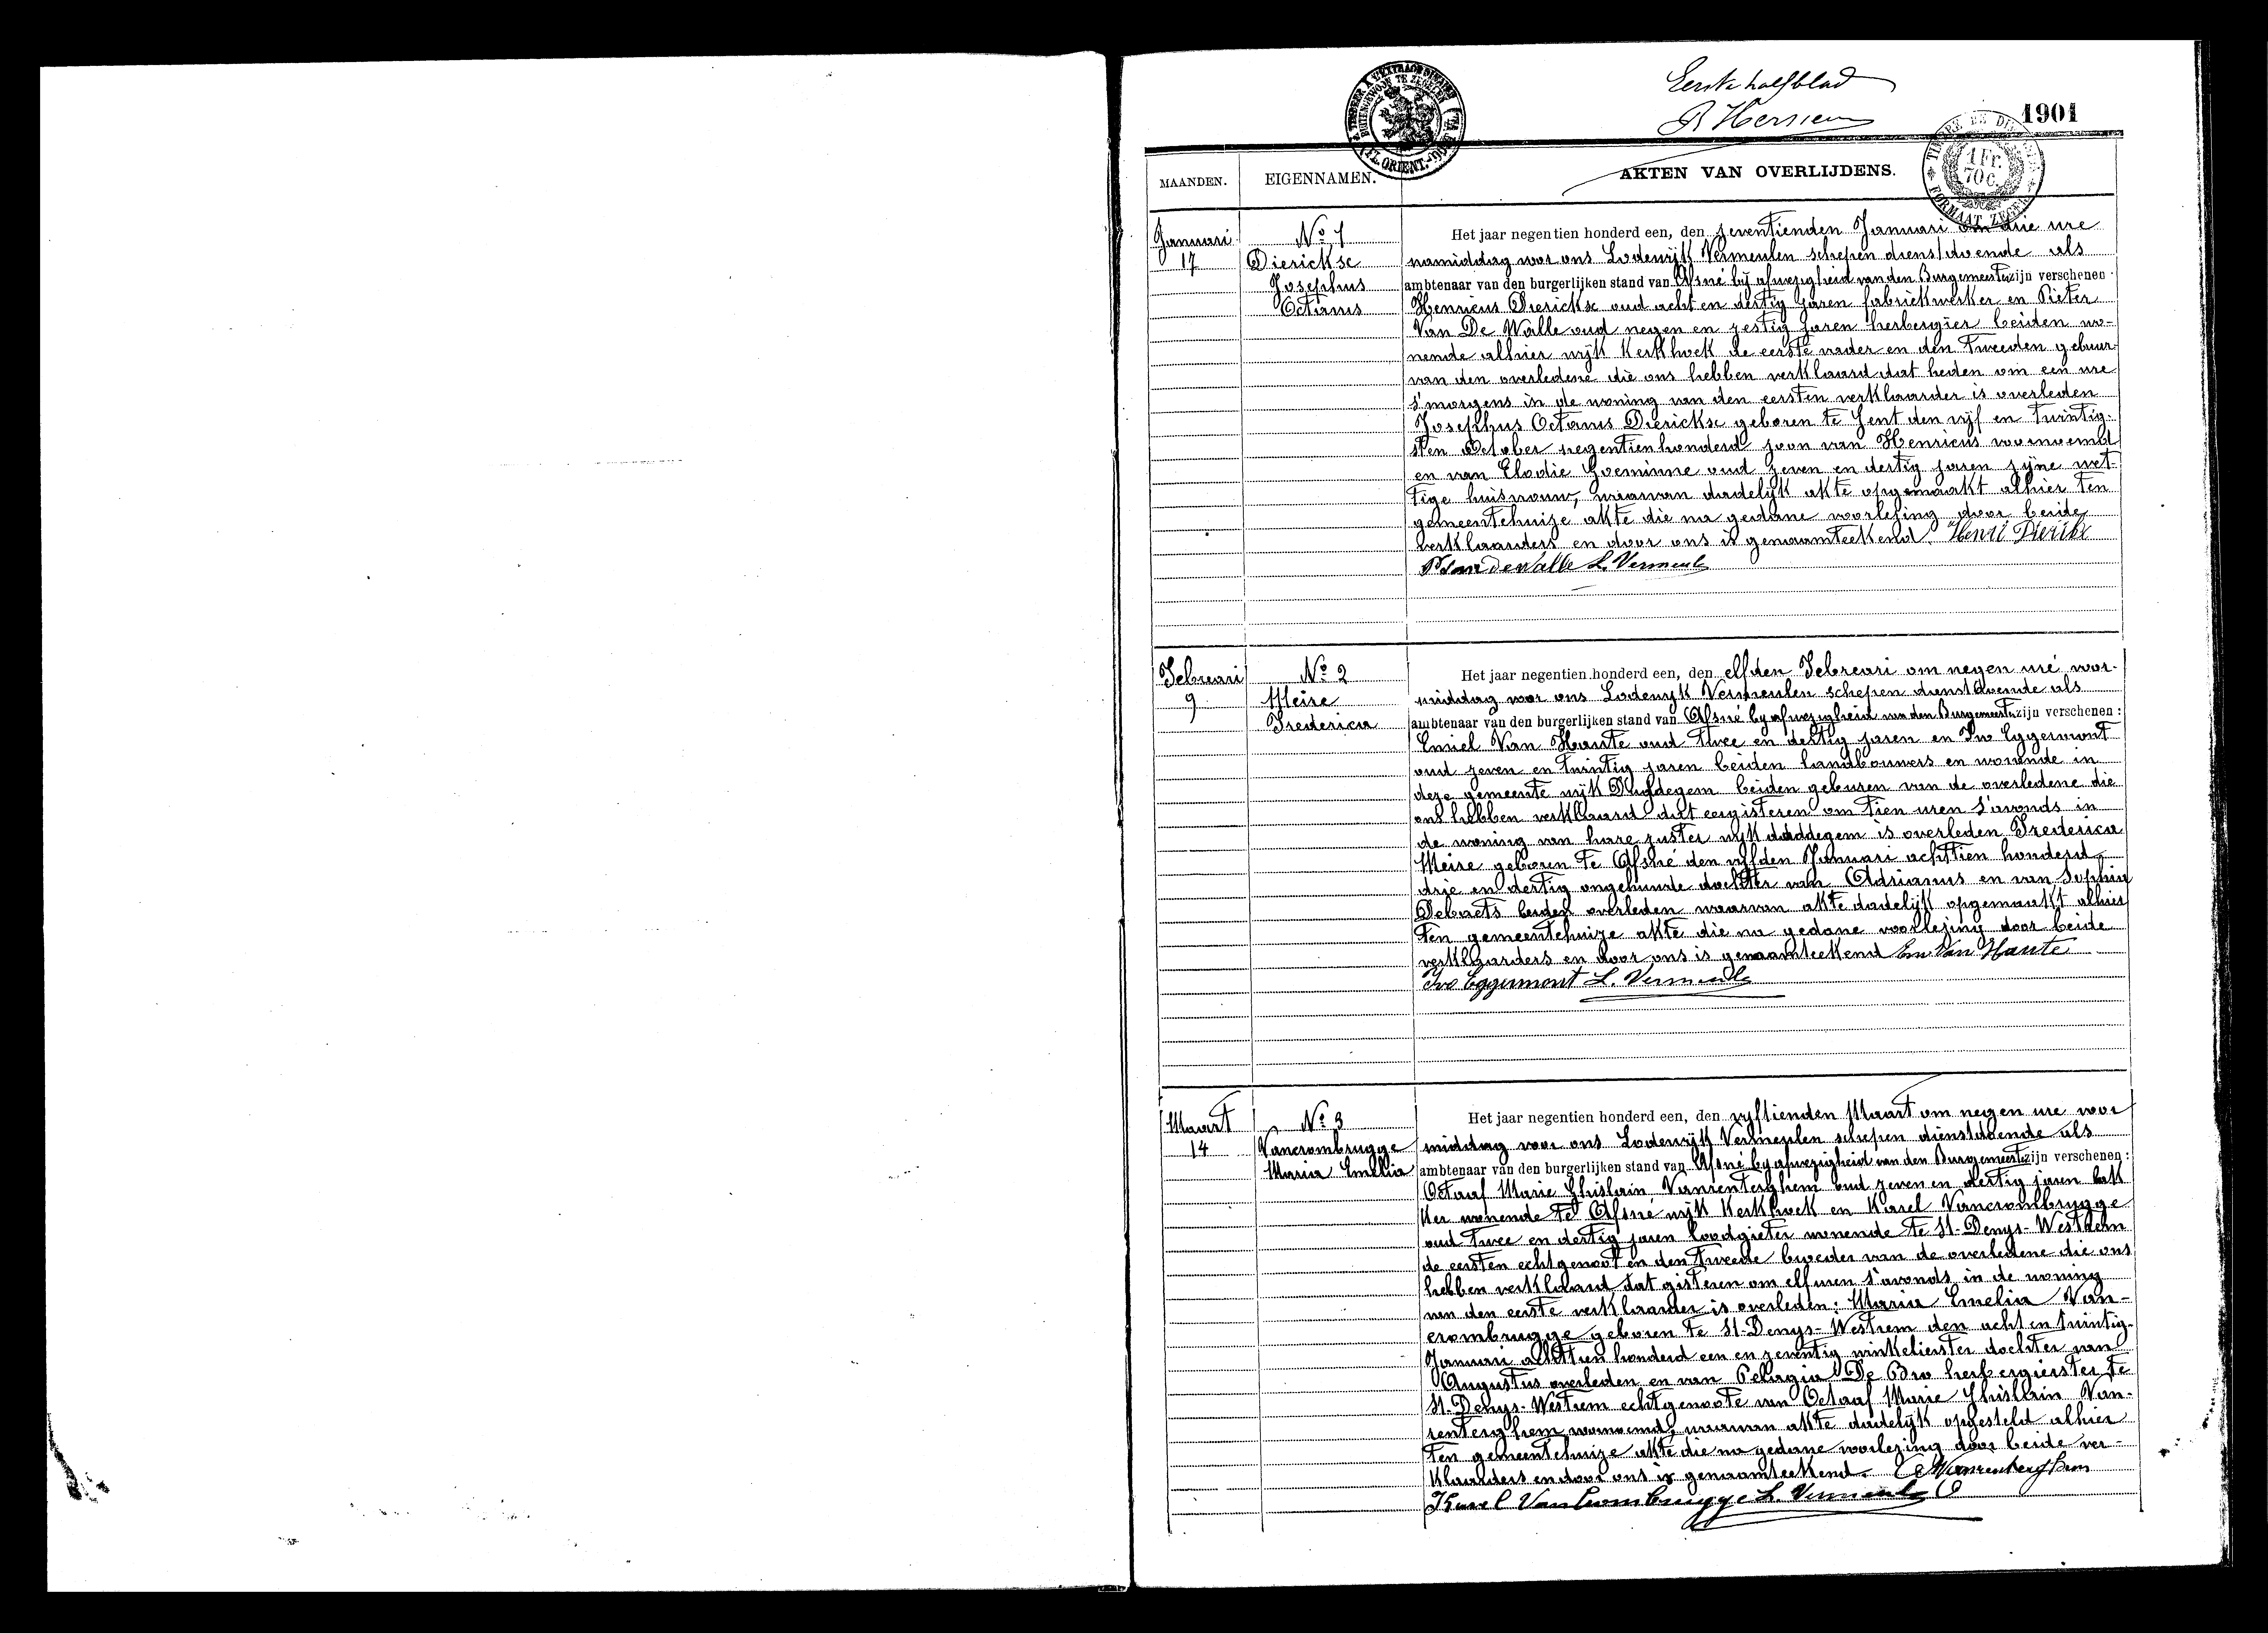 Eerste halfblad
1901
1 Fr.
70 C.
MAANDEN. EIGENNAMEN. AKTEN VAN OVERLIJDENS.
Januari
17
No 1
Dierickse
Josephus
Octavus
Het jaar negentien honderd een, den zeventienden Januari om drie ure
namiddag voor ons Lodewijk Vermeulen schepen dienstdoende als
ambtenaar van den burgerlijken stand van Afsné bij afwezigheid van den Burgemeester zijn verschenen
Henricus Dierickse oud acht en dertig jaren fabriekwerker en Pieter
Van De Walle oud negen en zestig jaren herbergier beiden wo-
nende alhier wijk Kerkhoek de eerste vader en den tweeden gebuur
van den overledene die ons hebben verklaard dat heden om een ure
s'morgens in de woning van den eersten verklaarder is overleden
Josephus Octavus Dierickse geboren te Gent den vijf en twintig-
sten October negentienhonderd zoon van Henricus voornoemd
en van Elodie Goeminne oud zeven en dertig jaren zijne wet-
tige huisvrouw, waarvan dadelijk akte opgemaakt alhier ten
gemeentehuize akte die na gedane voorlezing door beide
verklaarders en door ons is genaamteekend. Henri Dierickx
P Van de Walle L. Vermeulen
Februari
9
No 2
Meire
Frederica
Het jaar negentien honderd een, den elfden Februari om negen ure voor-
middag voor ons Lodewijk Vermeulen schepen dienstdoende als
ambtenaar van den burgerlijken stand van Afsné bij afwezigheid van den Burgemeester zijn verschenen :
Emiel Van Haute oud twee en dertig jaren en Ivo Eggermont
oud zeven en twintig jaren beiden landbouwers en wonende in
deze gemeente wijk beiden geburen van de overledene die
ons hebben verklaard dat eergisteren om tien uren s'avonds in
de woning van hare zuster wijk is overleden Frederica
Meire geboren te Afsné den vijfden Januari achttien honderd
drie en dertig ongehuwde dochter van Adrianus en van Sophia
Debaets beiden overleden waarvan akte dadelijk opgemaakt alhier
ten gemeentehuize akte die na gedane voorlezing door beide
verklaarders en door ons is genaamteekend Em Van Haute
Ivo Eggermont L. Vermeulen
Maart
14
No 3
Vancrombrugge
Maria Emelia
Het jaar negentien honderd een, den vijftienden Maart om negen ure voor
middag voor ons Lodewijk Vermeulen schepen dienstdoende als
ambtenaar van den burgerlijken stand van Afsné bij afwezigheid van den Burgemeester zijn verschenen :
Octaaf Marie Ghislain Vanrenterghem oud zeven en dertig jaren bak
ker wonende te Afsné wijk Kerkhoek en Karel Vancrombrugge
oud twee en dertig jaren loodgieter wonende te St-Denys-Westrem
de eersten echtgenoot en den tweede broeder van de overledene die ons
hebben verklaard dat gisteren om elf uren s'avonds in de woning
van den eerste verklaarder is overleden: Maria Emelia Van-
crombrugge geboren te St-Denys-Westrem den acht en twintig-
Januari achttien honderd een en zeventig winkelierster dochter van
Augustus overleden en van Pelagia De Bro herbergierster te
St-Denys-Westrem echtgenoote van Octaaf Marie Ghislain Van-
renterghem voornoemd, waarvan akte dadelijk opgesteld alhier
ten gemeentehuize akte die na gedane voorlezing door beide ver-
klaarders en door ons is genaamteekend. O Vanrenterghem
Karel Vancrombrugge L. Vermeulen